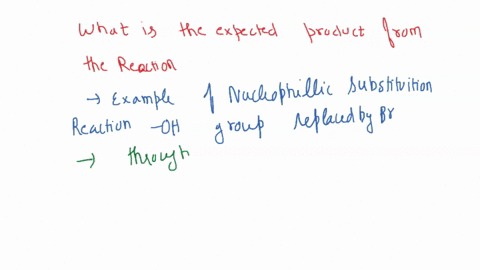 What is the expected product from
the Reaction
→ Example of Nucleophillic substituition
Reaction -OH group replaced by Br
→ through